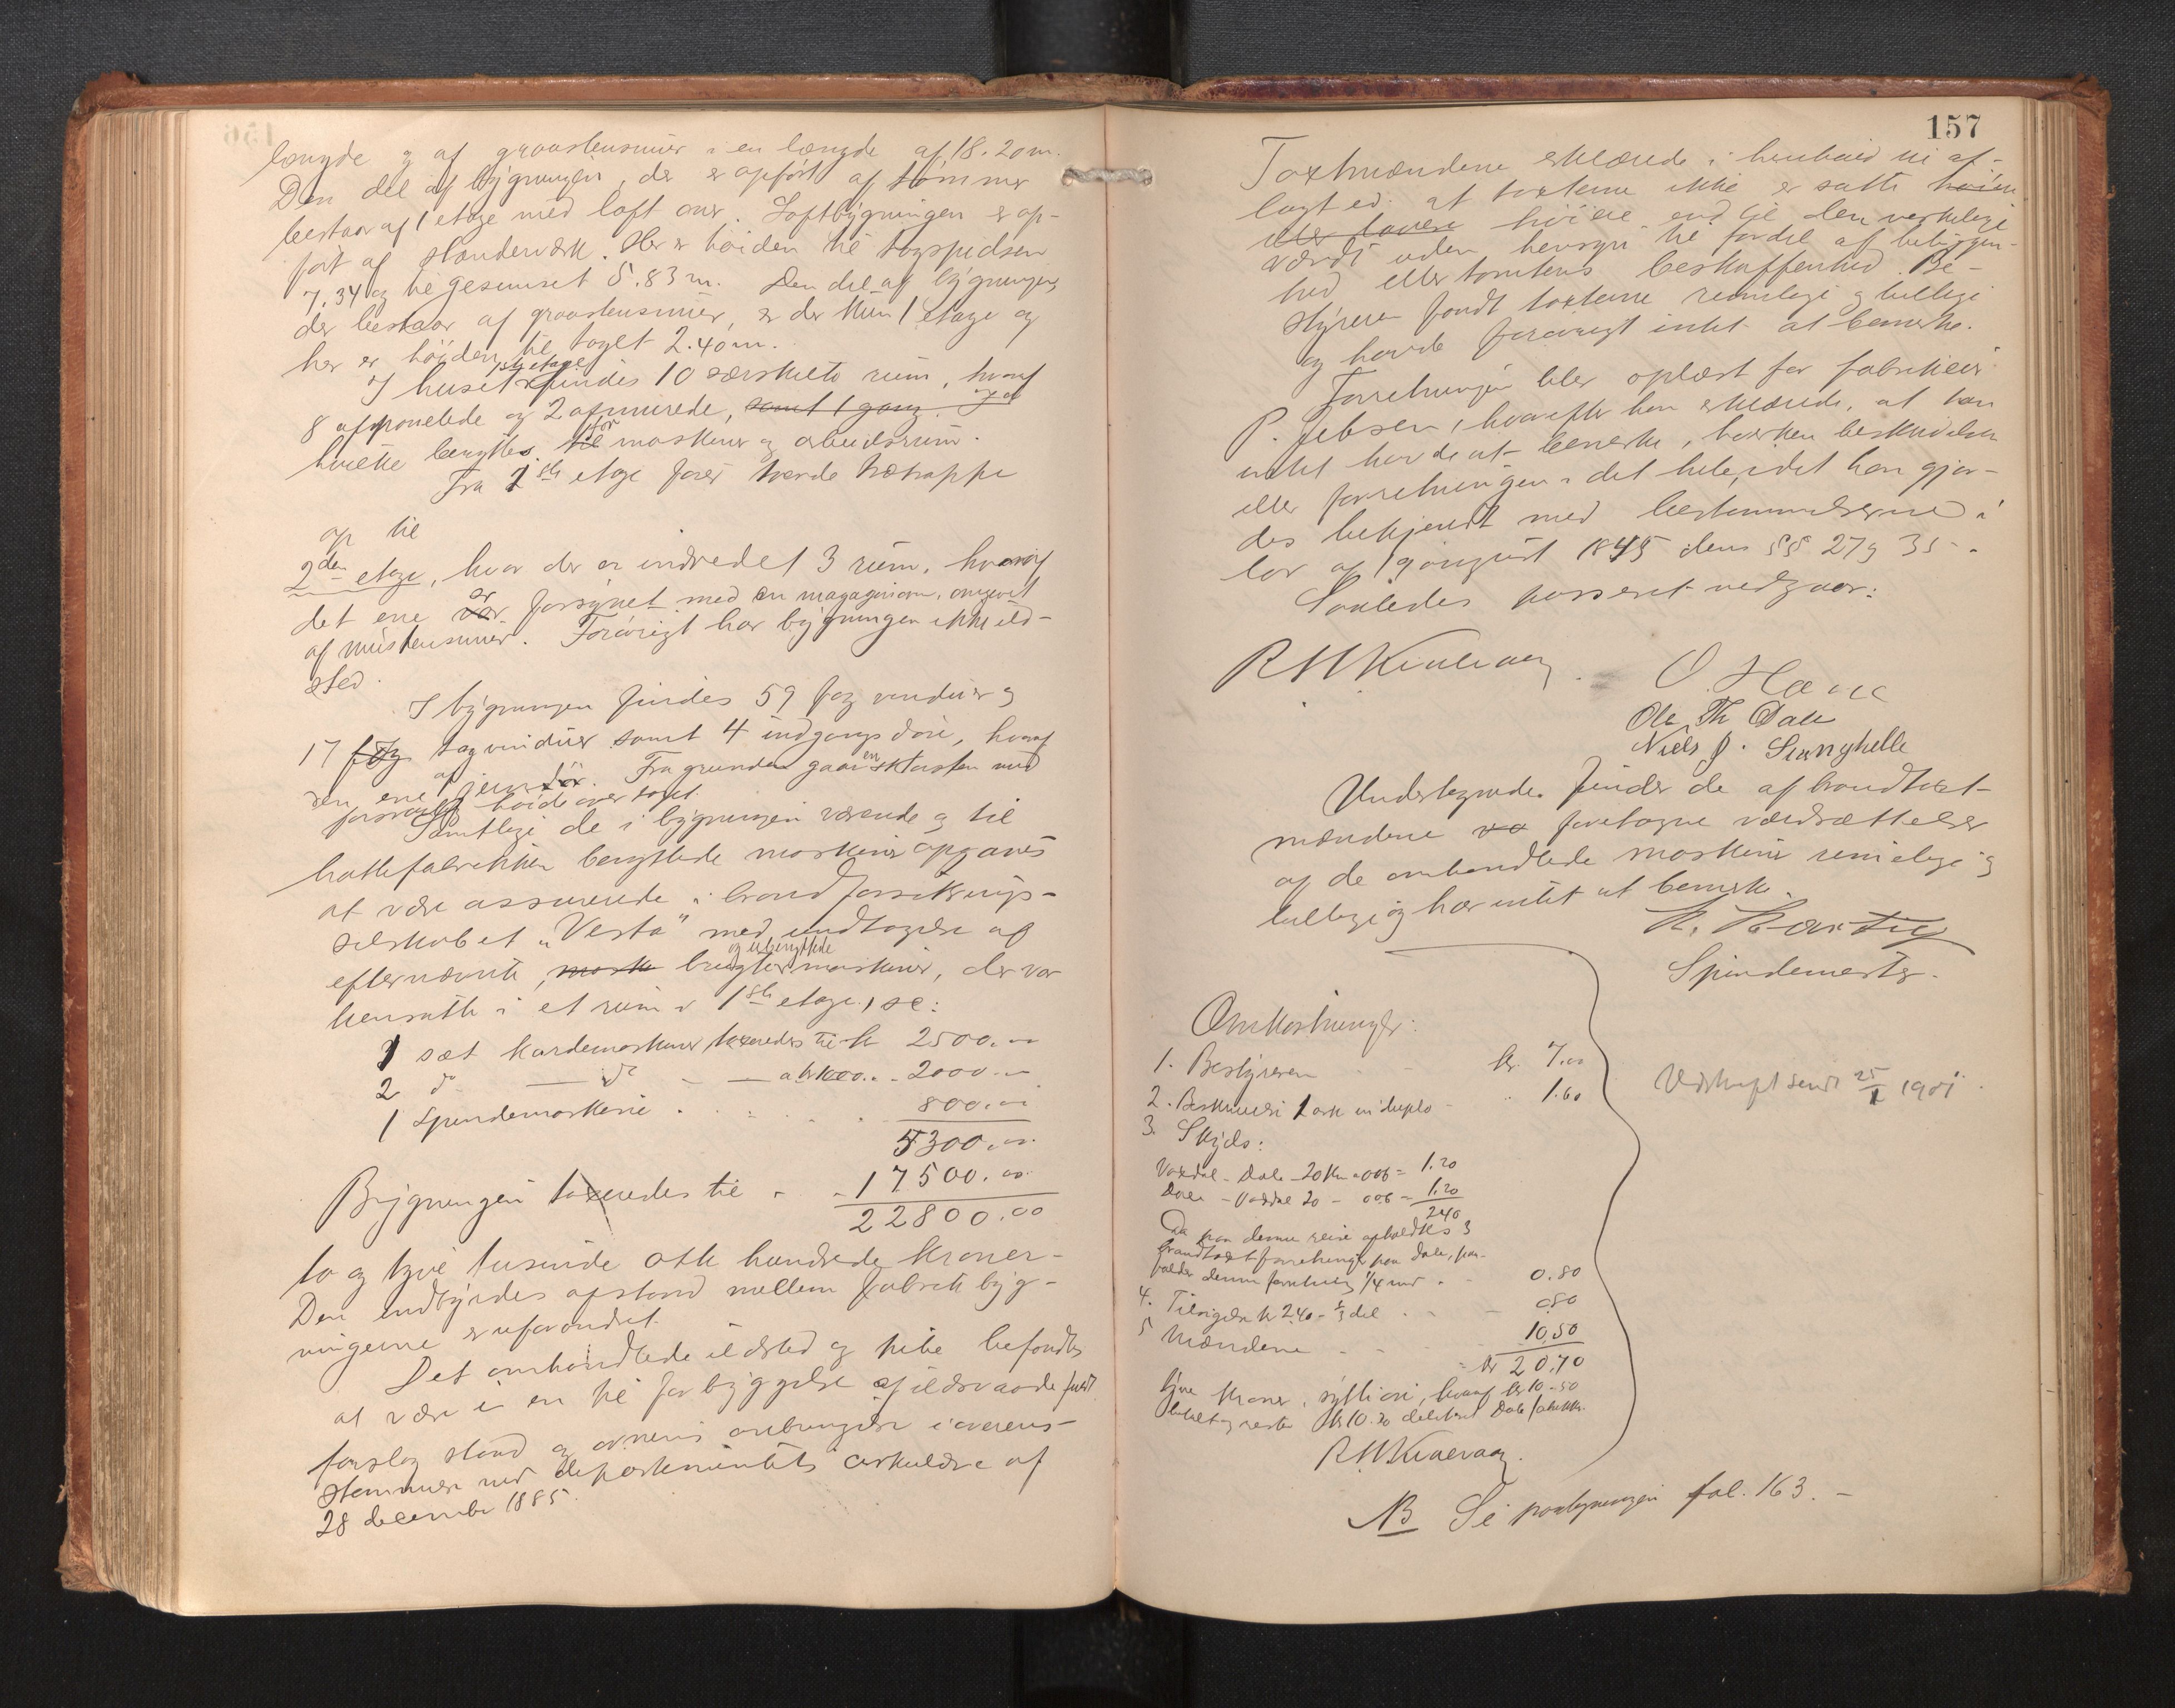 længde og af graastensmur i en længde af 18.20 m.
Den del af bygningen, der er opført af tømmer
bestaar af 1 etage med loft over. Loftbygningen er op-
ført af standerværk. Her er høiden til tagspidsen
7.34 og til gesimset 5.83 m. Den del af bygningen,
der bestaar af graastensmur, er der kun 1 etage og
her er høiden til taget 2.40 m.
I huset 1ste etage findes 10 særskilte rum, hvoraf
8 afpanelede og 2 afmurede, samt 1 gang.
hvilke benyttes til for maskiner og arbeidsrum.
Fra 1ste etage fører trætrappe
op til
2den etage, hvor der er indredet 3 rum, hvoraf
det ene var er forsynet med en magasinovn, omgivet
af murstensmur. Forøvrigt har bygningen ikke ild-
sted.
I bygningen findes 59 fag vinduer og
17 fag tagvinduer samt 4 indgangsdøre, hvoraf
den ene af jern. Fra grunden gaar en skorsten med
forsvarlig høide over taget.
Samtlige de i bygningen værende og til
hattefabrikken benyttede maskiner opgaves
at være assurerede i brandforsikrings-
selskabet "Vesta" med undtagelse af
efternævnte, mask brugte og ubenyttede maskiner, der var
hensatte i et rum i 1ste etage, se:
1 sæt kardemaskiner taxeredes til kr 2500.00
2 do — do — a kr 1000.. - 2000.00
1 Spindemaskine . . . . 800.00
5300.00
Bygningen taxeredes til - - 17500.00
22800.00
to og tyve tusinde otte hundrede kroner-
Den indbyrdes afstand mellem fabrikbyg-
ningerne er uforandret.
Det omhandlede ildsted og pibe befandtes
at være i en til forbyggelse af ildsvaade fuldt
forslag stand og ovnens anbringelse i overens-
stemmelse med departementets cirkulære af
28 december 1885.
157
Taxtmændene erklærede i henhold til af-
lagt ed: at taxterne ikke er satte høiere
eller lavere høiere end til den virkelige
værdi uden hensyn til fordel af beliggen-
hed eller tomtens beskaffenhed. Be-
styreren fandt taxterne rimelige og billige
og havde forøvrigt intet at bemerke.
Forretningen blev oplæst for fabrikeier
P. Jebsen, hvorefter han erklærede, at han
intet havde at bemerke, hverken beskrivelsen
eller forretningen i det hele, idet han gjor-
des bekjendt med bestemmelserne i
lov af 19 august 1845 dens §§ 27 og 35.
Saaledes passeret vedgaar:
R M Kinlevaag
O. Hane
Ole Th Dale
Niels J. Stanghelle
Undertegnede finder de af brandtaxt-
mændene foretagne værdsættelser
af de omhandlede maskiner rimelige og
billige og har intet at bemerke.
Spindemester.
Omkostninger:
1. Bestyreren - - kr. 7.00
2. Beskriveri 1 ark in duplo - . 1.60
3. Skyds:
Vaxdal - Dale - 20 Km a 006 = 1.20
Dale - Vaxdal 20 - 006 = 1.20
2.40
Da paa denne reise afholdtes 3
brandtaxtforretninger paa Dale, paa-
falder denne forretning 1/4 med . - 0.80
4. Tilsigelse kr 2.40 - 1/3 del . - - 0.80
5 Mændene - - - 10.50
kr 20.70
tyve kroner, sytti øre, hvoraf kr 10.50
betalt og resten kr 10.20 debiteret Dale fabrikker.
R M Kinlevaag.
Udskrift sendt 25/1 1901.
NB Se paategningen fol. 163. -